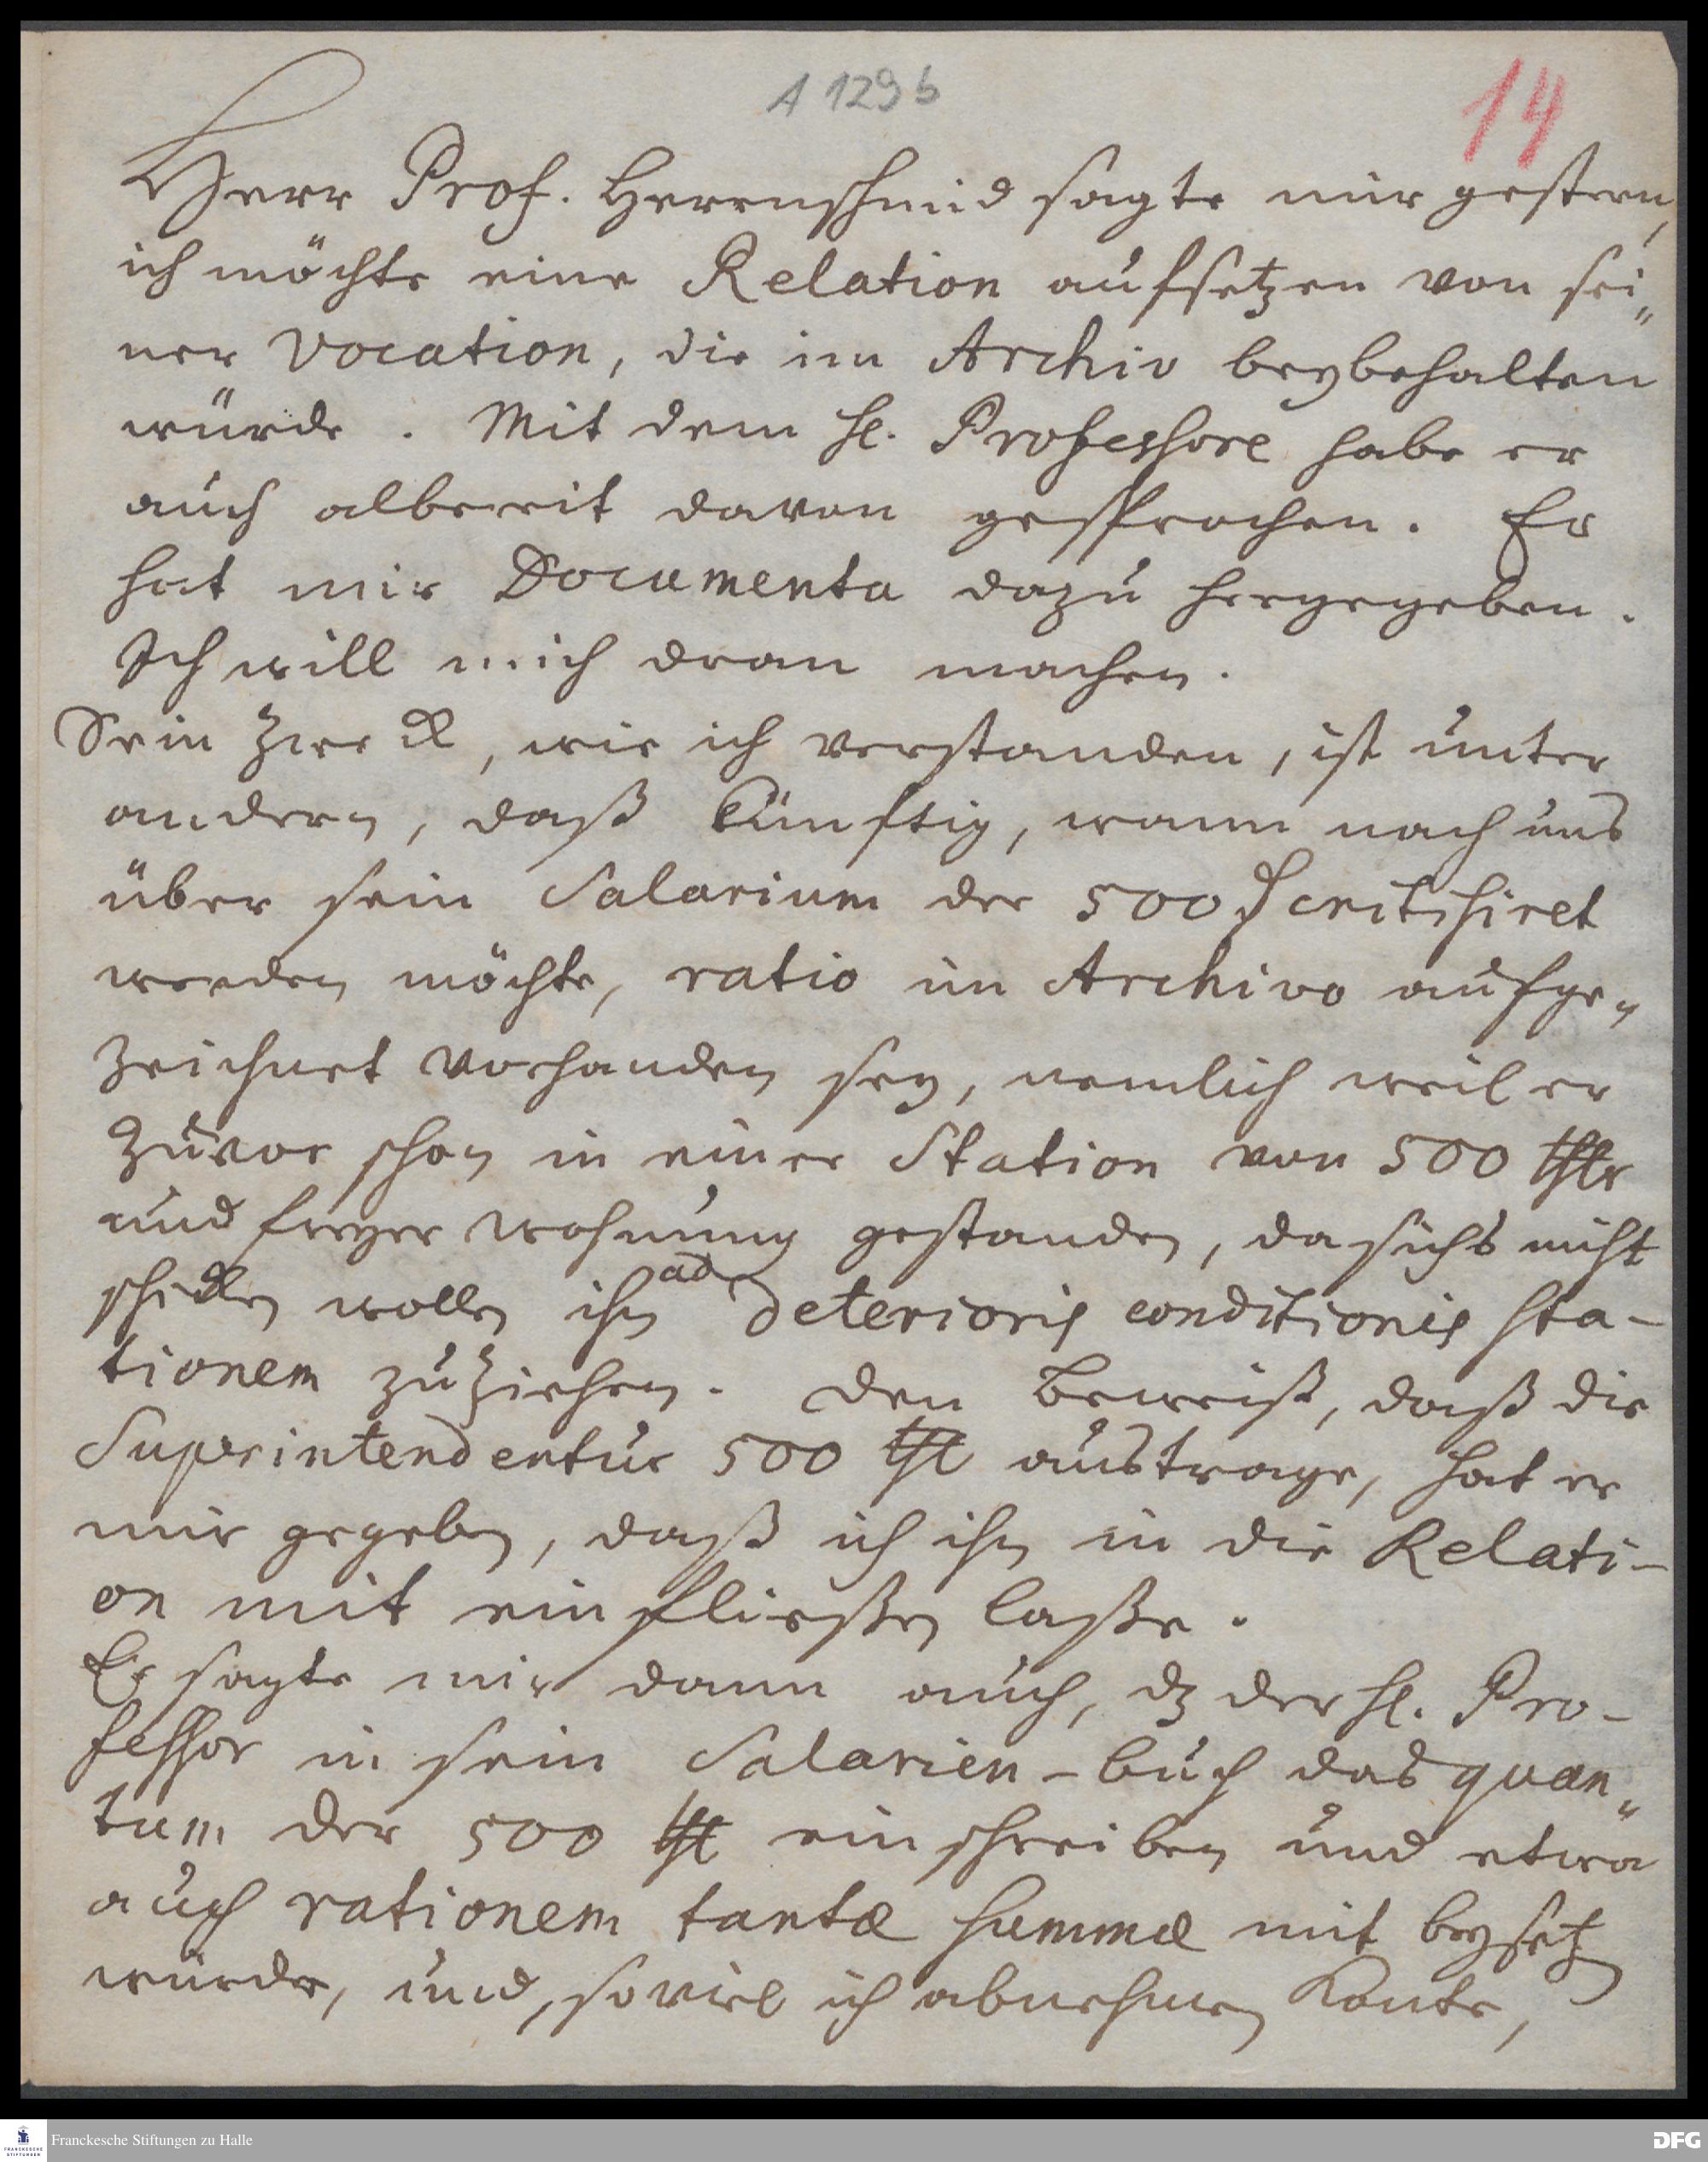 A 129 b
14
Herr Prof. Herrnschmid sagte mir gestern,
ich möchte eine Relation aufsetzen von sei„
ner Vocation, die im Archiv beybehalten
würde. Mit dem H. Professore habe er
auch albereit davon gesprochen. Er
hat mir Documenta dazu hergegeben.
Ich will mich dran machen.
Sein Zweck, wie ich verstanden, ist unter
andern, daß künftig, wann nach uns
über sein Salarium der 500 critisiret
werden möchte, ratio im Archivo aufge„
zeichnet vorhanden sey, nemlich weil er
zuvor schon in einer Station von 500 thlr
und freyer Wohnung gestanden, da sichs nicht
schicken wollen ihn ad deterioris conditionis sta-
tionem zu ziehen. Den Beweiß, daß die
Superintendentur 500 thl austrage, hat er
mir gegeben, daß ich ihn in die Relati-
on mit einfließen laße.
Er sagte mir dann auch, dz der H. Pro-
fessor in sein Salarien-buch das quan„
tum der 500 thl einschreiben und etwa
auch rationem tantæ summæ mit beysetzen
würde, und, soviel ich abnehmen konte,
Franckesche Stiftungen zu Halle
FRANCKESCHE
STIFTUNGEN
DFG